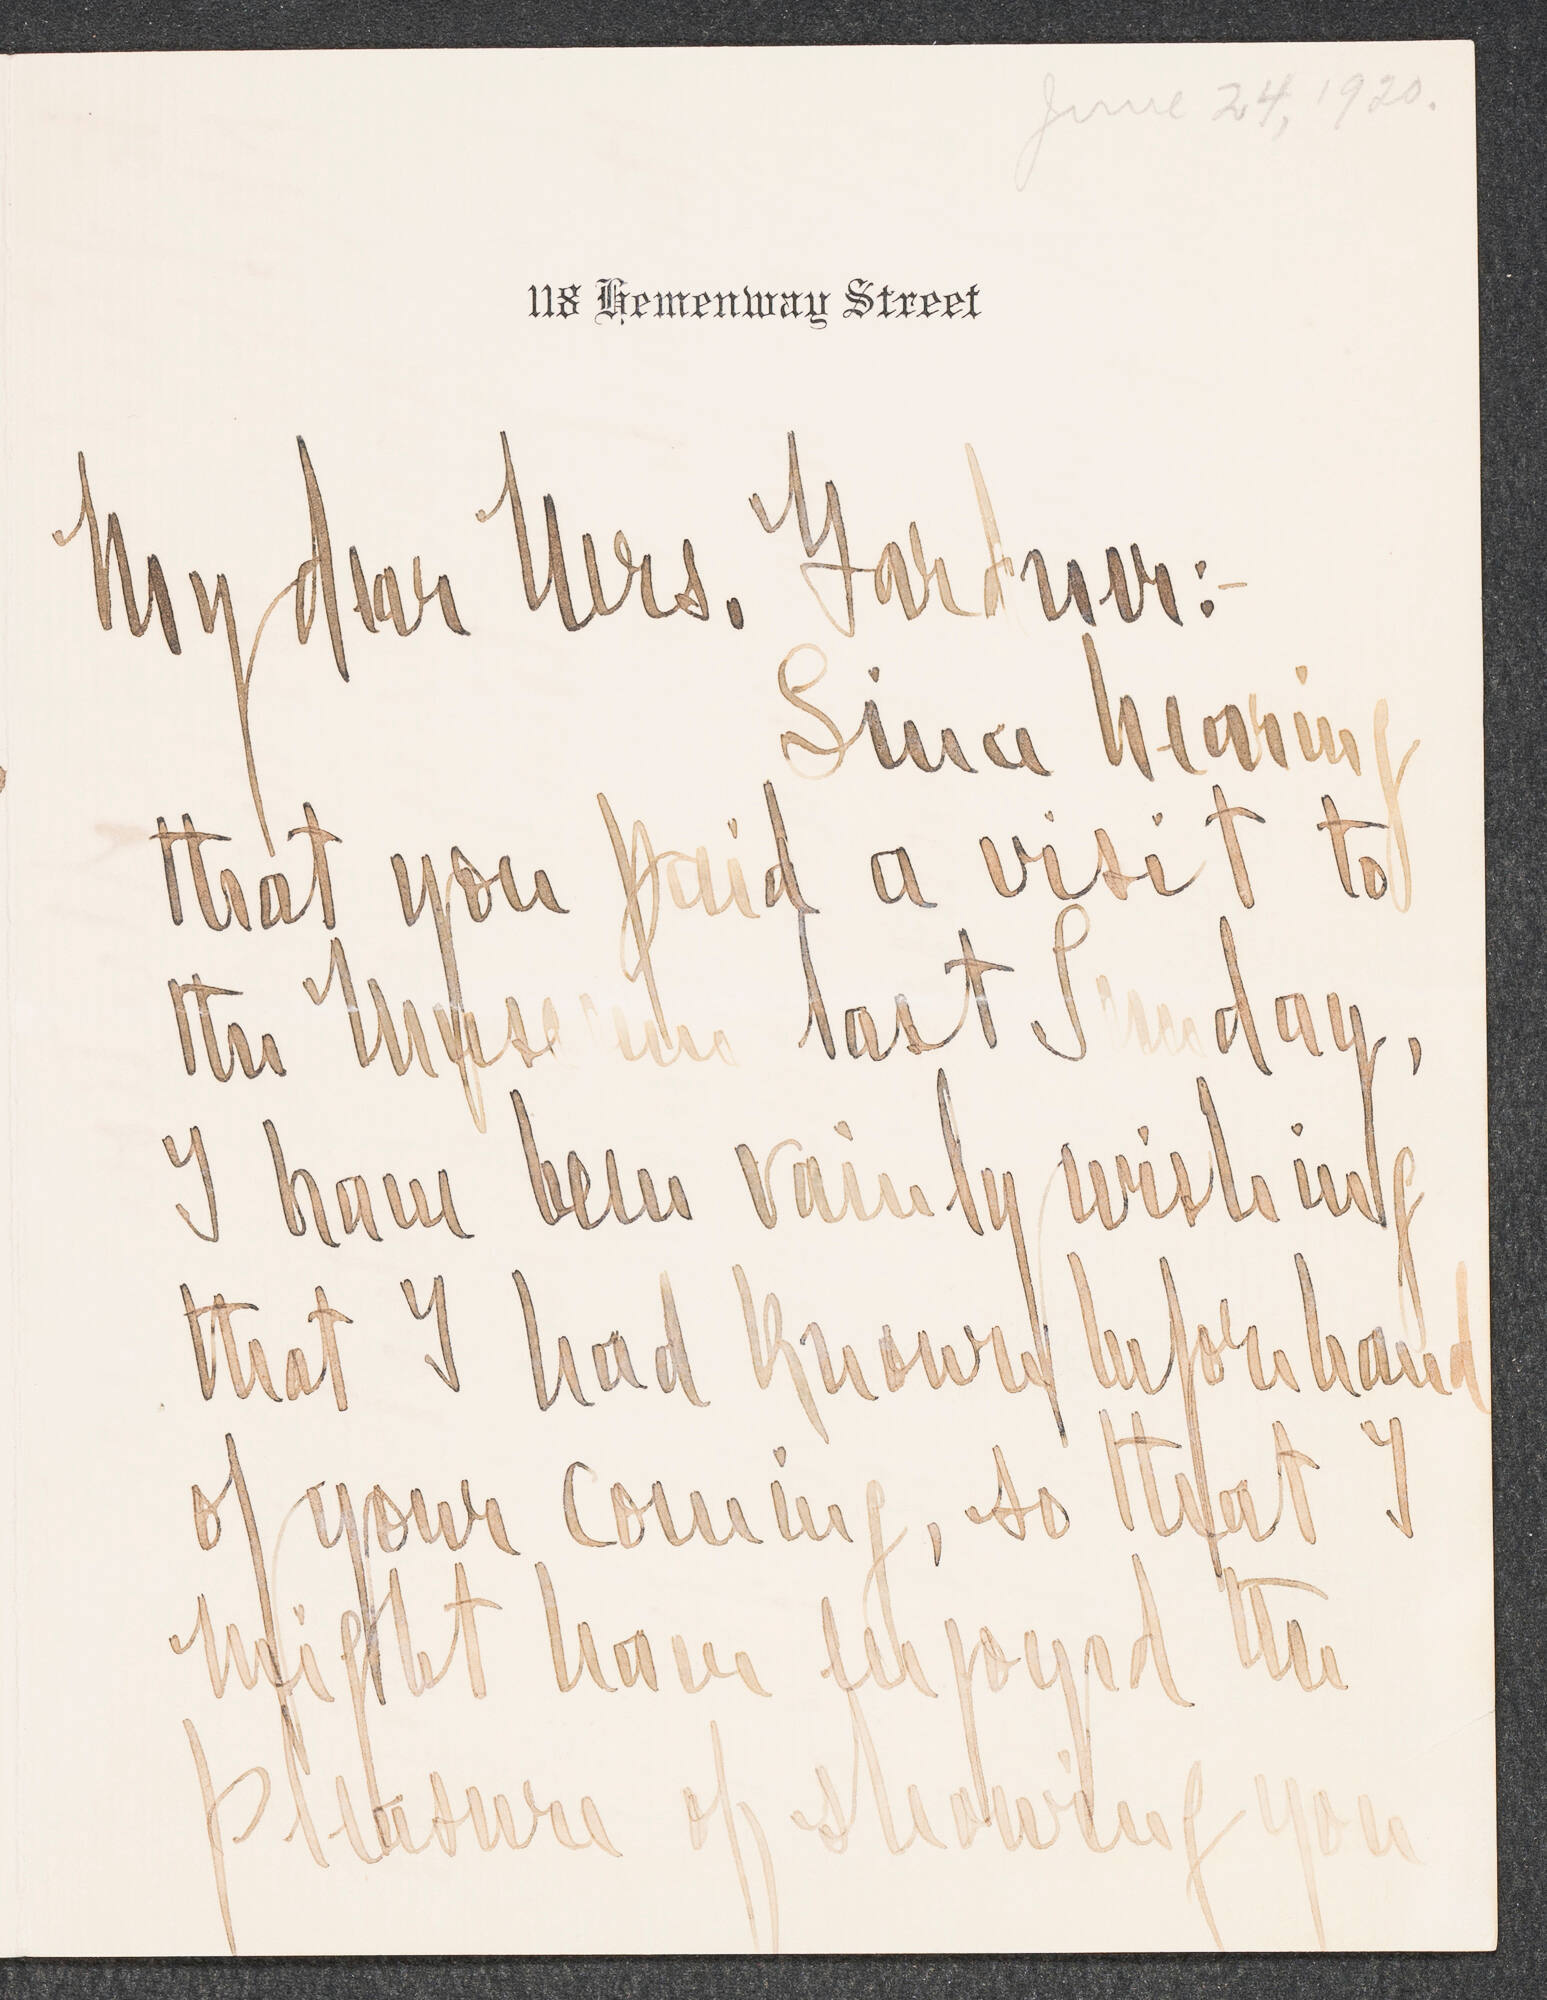 June 24, 1920.
118 Hemenway Street
My dear Mrs. Gardner:-
Since hearing
that you paid a visit to
the Museum last Sunday,
I have been vainly wishing
that I had known beforehand
of your coming, so that I
might have enjoyed the
pleasure of showing you